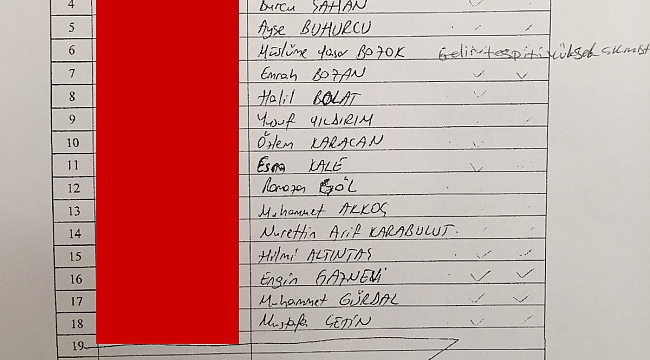 4 Burcu ŞAHAN
5 Ayşe BUHURCU
6 Müslüme Yaşar BOZOK Gelir tespiti yüksek çıkmıştı
7 Emrah BOZAN ✓ ✓
8 Halil BOLAT ✓
9 Yusuf YILDIRIM
10 Özlem KARACAN ✓
11 Esma KALE ✓
12 Ramazan EGÖL
13 Muhammet AKKOÇ
14 Nurettin Arif KARABULUT
15 Hilmi ALTINTAŞ ✓ ✓
16 Engin GAZNEVİ ✓ ✓
17 Muhammet GÜRDAL ✓ ✓
18 Mustafa ÇETİN ✓
19